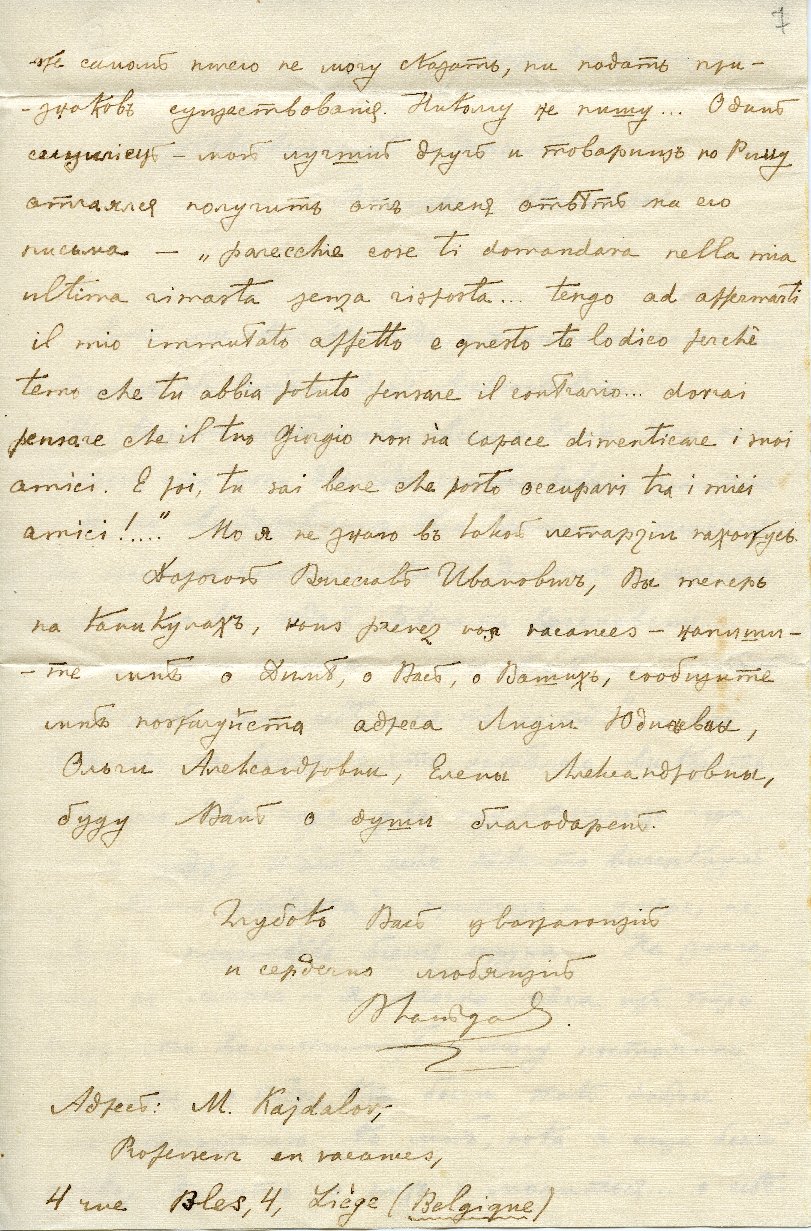 7
же самомъ ничего не могу сказать, ни подать при-
-знаковъ существованiя. Никому не пишу... Одинъ
- мой лучшiй другъ и товарищъ по Риму
отчаялся получить отъ меня отвѣтъ на его
письма - „parecchie cose ti domandava nella mia
ultima rimasta senza risposta... tengo ad affermarti
il mio immutato affetto e questo te lo dico perchè
temo che tu abbia potuto pensare il contrario... dovrai
pensare che il tuo Giorgio non sia capace dimenticare i suoi
amici. E poi, tu sai bene che posto occupavi tra i miei
amici!...." Но я не знаю въ какой летаргiи нахожусь.
Дорогой Вячеславъ Ивановичъ, Вы теперь
на каникулахъ, vous prenez vos vacances - напиши-
-те мнѣ о Димѣ, о Васъ, о Вашихъ, сообщите
мнѣ пожалуйста адреса Лидiи Юдиневны,
Ольги Александровны, Елены Александровны,
буду Вамъ о души благодаренъ.
Глубоко Васъ уважающiй
и сердечно любящiй
ВКайдаловъ.
Адресъ: M. Kajdalov,
Professeur en vacances,
4 rue Bles, 4, Liège (Belgique)